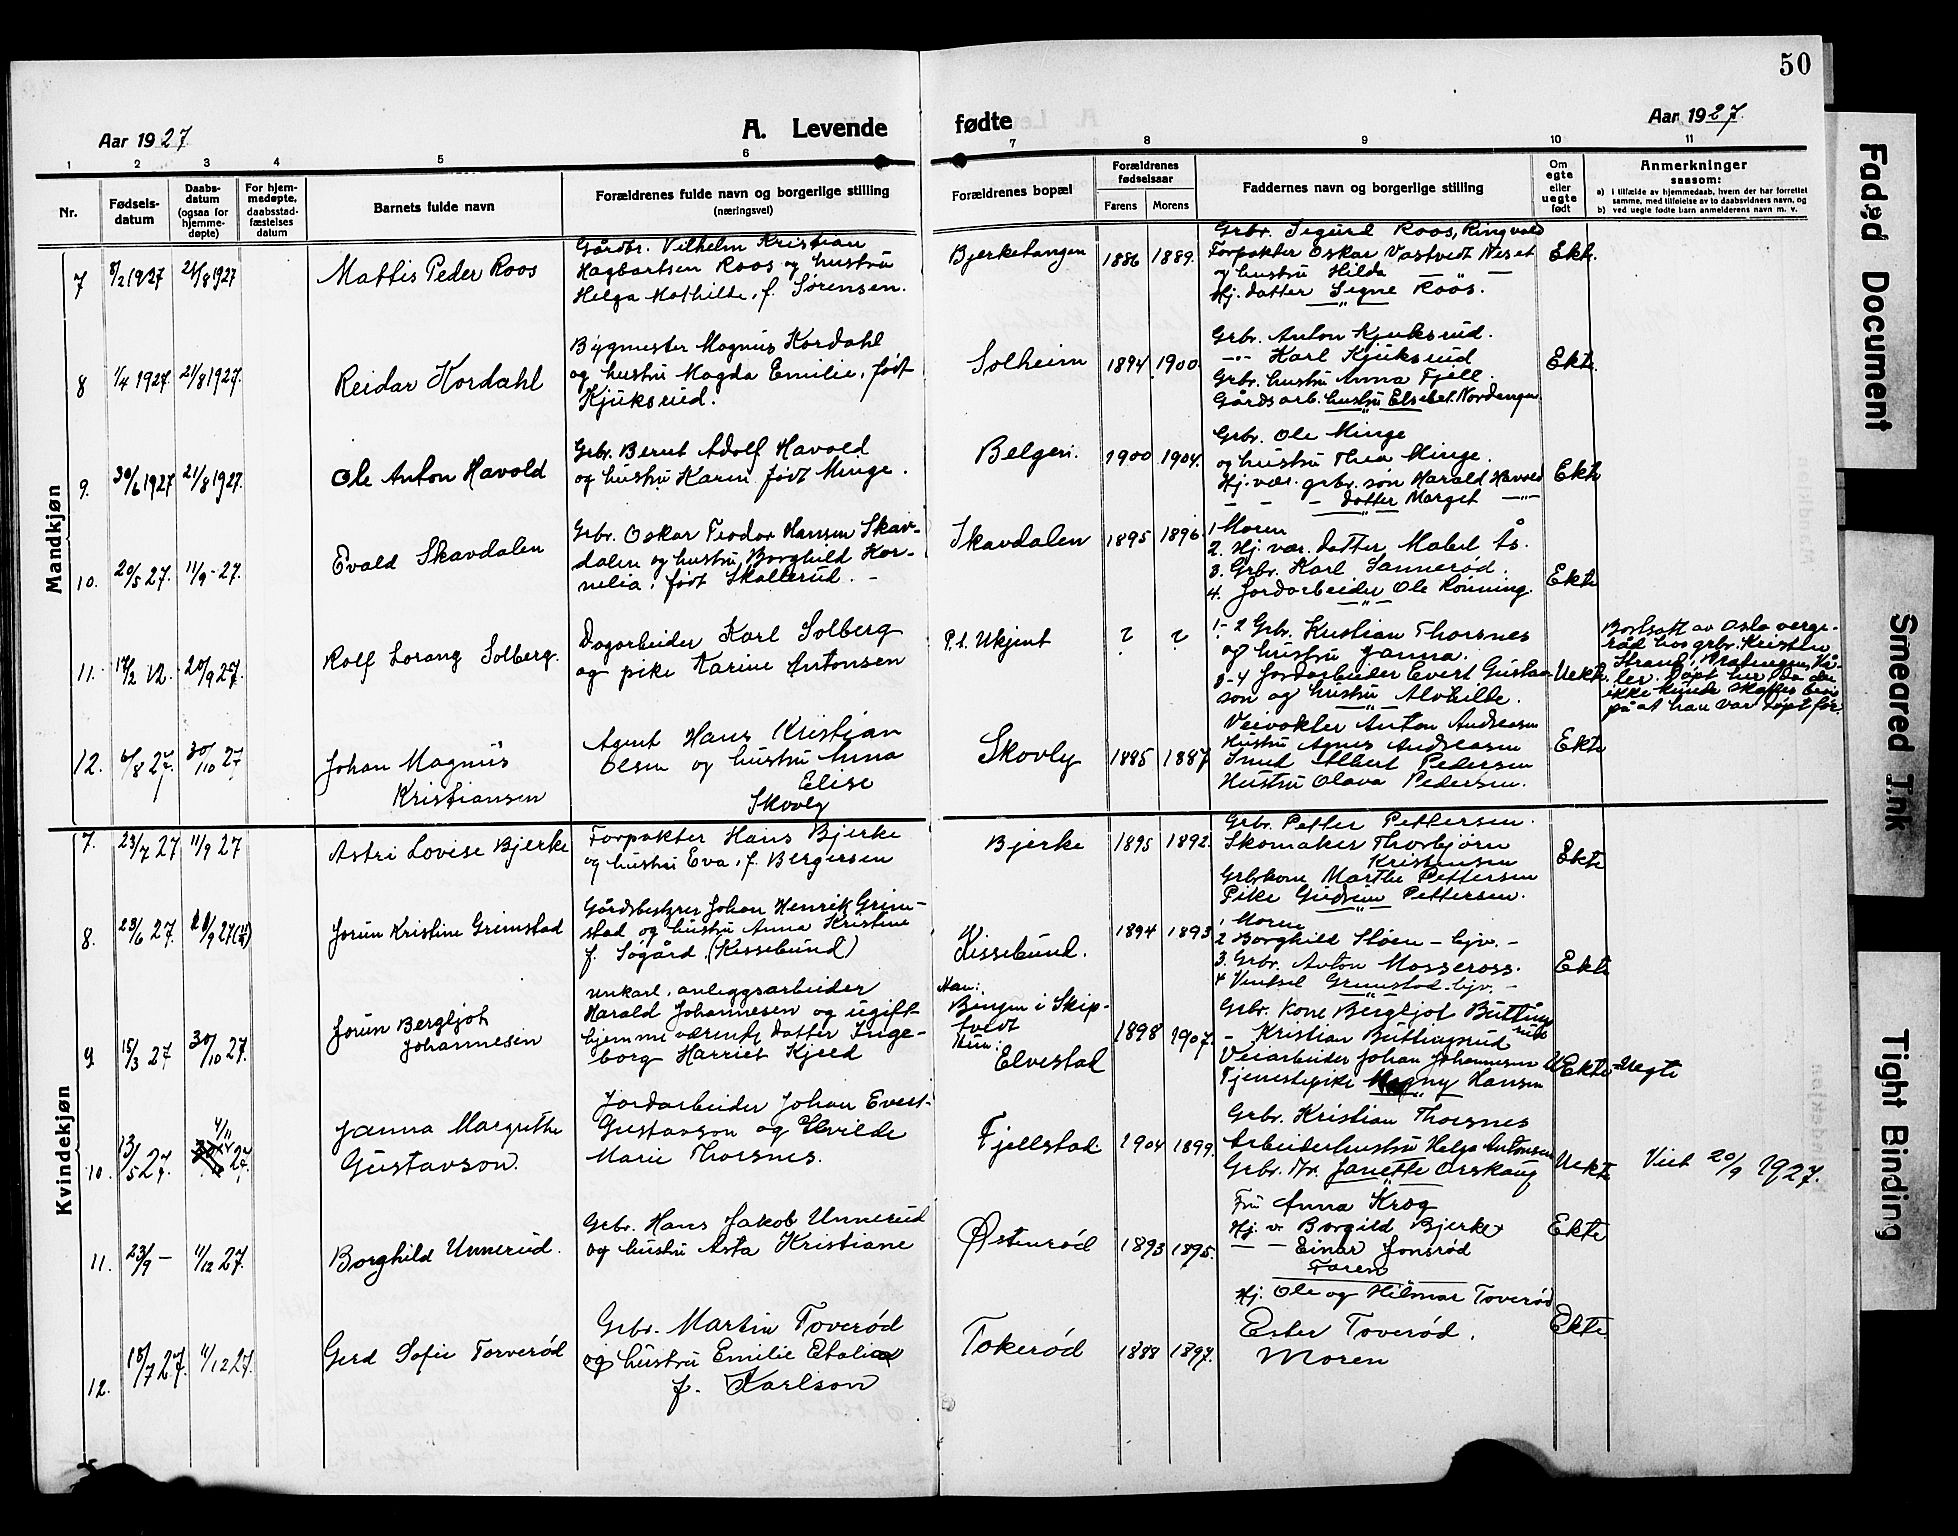 50
Aar 1927.
A. Levende fødte
Aar 1927.
1 2 3 4 5 6 7 8 9 10 11
Nr.
Fødsels-
datum
Daabs-
datum
(ogsaa for
hjemme-
døpte)
For hjem-
medøpte,
daabsstad-
fæstelses
datum
Barnets fulde navn
Forældrenes fulde navn og borgerlige stilling
(næringsvei)
Forældrenes bopæl
Forældrenes
fødselsaar
Farens Morens
Faddernes navn og borgerlige stilling
Om
egte
eller
uegte
født
Anmerkninger
saasom:
a) i tilfælde av hjemmedaab, hvem der har forrettet
samme, med tilføielse av to daabsvidners navn, og
b) ved uegte fødte barn anmelderens navn m. v.
Mandkjøn
7 8/2 1927 21/8 1927
Mattis Peder Roos
Gårdbr. Vilhelm Kristian
Hagbartsen Roos og hustru
Helga Mathilde, f. Sørensen.
Bjerketangen
1886 1889.
Grbr. Sigurd Roos, Ringvold
Forpakter Oskar Vastvedt Neset
og hustru Hilda — " —
Hj. datter Signe Roos.
Ekte.
8 1/4 1927. 21/8 1927.
Reidar Kordahl
Bygmester Magnus Kordahl
og hustru Magda Emilie, født
Kjuksrud.
Solheim
1894 1900
Grbr. Anton Kjuksrud.
—"— Karl Kjuksrud
Grbr. hustru Anna Fjell.
Gårdsarb. hustru Elsebet Nordengen
Ekte.
9. 30/6 1927 21/8 1927.
Ole Anton Havold
Grbr. Bernt Adolf Havold
og hustru Karen født Minge.
Belgen.
1900 1904.
Grbr. Ole Minge
og hustru Thea Minge.
Hj. vær. grbr. søn Harald Havold
— — — datter Marget —"—
Ekte
10. 20/5 27. 11/9 - 27.
Evald Skavdalen
Grbr. Oskar Teodor Hansen Skav-
dalen og hustru Borghild Kor-
nelia, født Skallerud. —
Skavdalen
1895 1896.
1 Moren
2. Hj. vær. datter Mabel Ås.
3. Grbr. Karl Sannerød.
4. Jordarbeider Ole Rønning.
Ekte
11. 17/2 12. 20/9 27.
Rolf Lorang Solberg.
Dagarbeider Karl Solberg
og pike Karine Antonsen
P.t. Ukjent
? ?
1 - 2 Grbr. Kristian Thorsnes
og hustru Janna.
3-4 Jordarbeider Evert Gustav-
son og hustru Alvhilde.
Uekte.
Bortsatt av Oslo verge-
råd hos grbr. Kristen
Døpt her da det
ikke kunde skaffes bevis
på at han var døpt før.
12. 6/8 27. 30/10 27
Johan Magnus
Kristiansen
Agent Hans Kristian
Olsen og hustru Anna
Elise
Skovly
Skovly
1885 1887
Veivokter Anton Andreasen
Hustru Agnes Andreasen
Smed Albert Pedersen
Hustru Olava Pedersen.
Ekte
Kvindekjøn
7. 23/7 27 11/9 27
Astri Lovise Bjerke
Forpakter Hans Bjerke
og hustru Eva, f. Bergersen
Bjerke
1895 1892.
Grbr. Petter Pettersen.
Skomaker Thorbjørn
Kristensen
Grbrkone Marthe Pettersen
Pike Gudrun Pettersen.
Ekte
8. 23/6 27.
Jorun Kristine Grimstad
Gårdsbestyrer Johan Henrik Grim-
stad og hustru Anna Kristine
f. Søgård. (Kissebund)
Kissebund.
1894 1893
1 Moren
2 Borghild Støen - hjv. -
3. Grbr. Anton Mosseross.
4 Ventsel Grimstad - hjv. -
Ekte
9 15/3 27 30/10 27.
Jorun Bergljot
Johannesen
Unkarl, anleggsarbeider
Harald Johannesen og ugift
hjemmeværende datter Inge-
borg Harriet Kjed
Han:
Bingen i Skip-
tvedt
Hun:
Elvestad
1898 1907.
Grbr. Kone Bergljot Buttings-
rud
— Kristian Buttingsrud
Veiarbeider Johan Johannesen
Tjenestepike Magny Hansen
UEkte = Uegte
10. 13/5 27. 4/11 27.
Janna Margrethe
Gustavson.
Jordarbeider Johan Evert
Gustavson og Elvilde
Marie Thorsnes.
Fjellstad.
1904 1899.
Grbr. Kristian Thorsnes
Arbeiderhustru Helga Antonsen
Grbr. Fr. Janette Orskaug
Uekte
Viet 20/9 1927.
11. 23/9 — 11/12 27.
Borghild Unnerud.
Grbr. Hans Jakob Unnerud
og hustru Asta Kristiane
Østenrød
1893 1895.
Fru Anna Krog
Hj. v. Borgild Bjerke
— — Einar Jonsrød
Faren
Ekte
12. 18/7 27. 11/12 27.
Gerd Sofie Torverød
Grbr. Martin Toverød
og hustru Emilie Etalia
f. Karlson
Tokerød
1888 1897.
Hj. Ole og Hilmar Toverød
Ester Toverød.
Moren
Ekte
Faded Document
Smeared Ink
Tight Binding